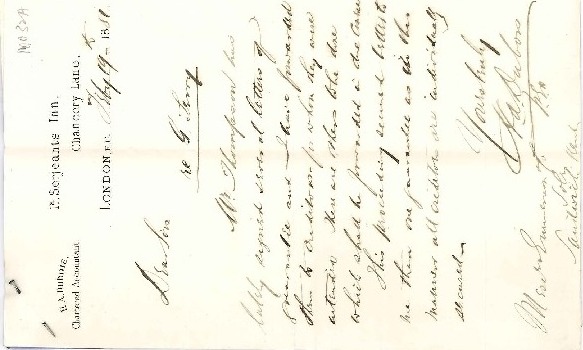 E. A. DUBOIS,
Chartered Accountant
Serjeants Inn,
Chancery Lane,
LONDON, E.C.
Feby 19th 1881
Dear Sirs
re G Terry
Mr Thompson has
lately signed several letters of
guarantee and I have forwarded
them to creditors for whom they were
intended. There are others to be due
which shall be provided in due course
This proceeding seemed better to
me than one guarantee as in this
manner all creditors are individually
secured.
Yours truly
E A Dubois
Messrs
Solrs